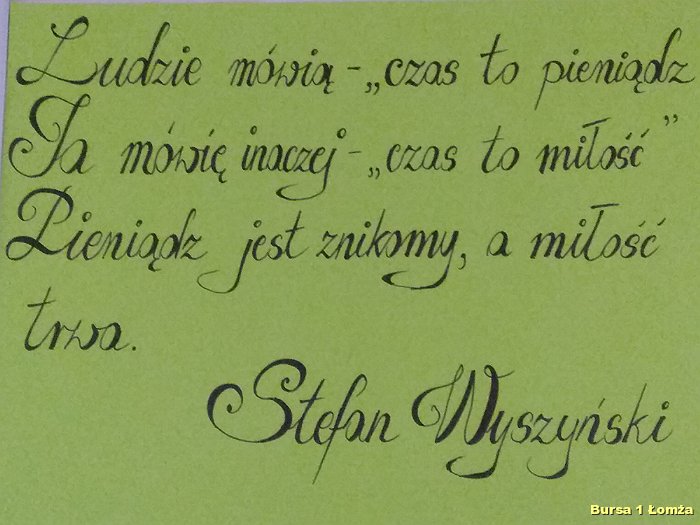 Ludzie mówią - „czas to pieniądz
Ja mówię inaczej - „czas to miłość”
Pieniądz jest znikomy, a miłość
trwa.
Stefan Wyszyński
Bursa 1 Łomża